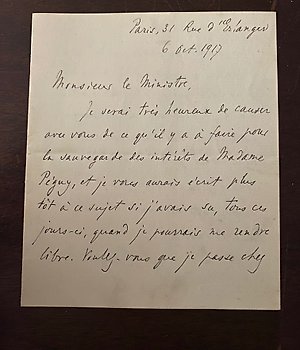 Paris, 31 Rue d'Erlanger
6 Oct. 1917
Monsieur le Ministre,
Je serai très heureux de causer
avec vous de ce qu'il y a à faire pour
la sauvegarde des intérêts de Madame
Péguy, et je vous aurais écrit plus
tôt à ce sujet si j'avais su, tous ces
jours-ci, quand je pourrais me rendre
libre. Voulez-vous que je passe chez